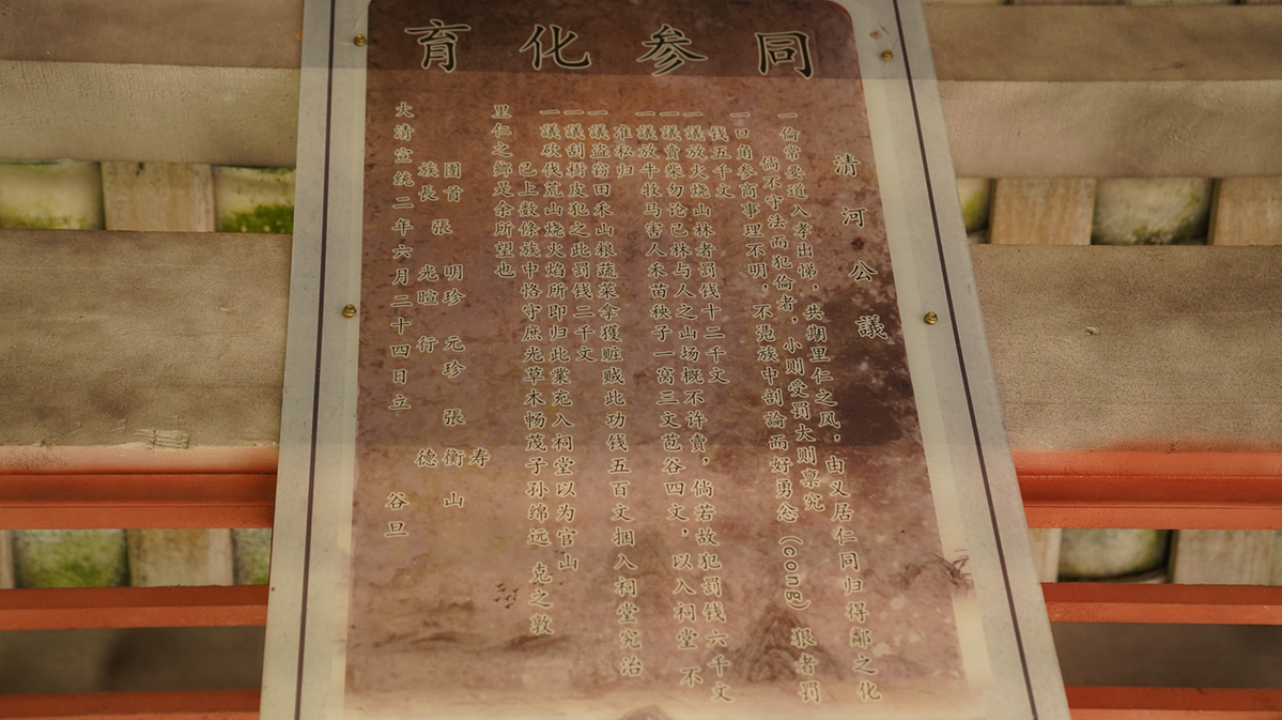 同参化育
清河公議
一倫常要道入孝出悌，共期里仁之风，由义居仁同归得鄰之化
倘不守法而犯倫者，小则受罰大则禀究
一口角参商事理不明，不憑族中剖論而好勇忿（cong）狠者罰
钱五千文
一議放火烧山林者罰钱十二千文
一議賣柴勿论己林与人之山场概不许賣，倘若故犯罰钱六千文
一議放牛牧马害人禾苗秧子一窝三文苞谷四文，以入祠堂 不
准私归
一議盗窃田禾山粮蔬菜拿獲赃贼此功钱五百文捆入祠堂究治
一議刮樹皮犯之此罰钱二千文
一議砍伐荒山烧火焰所即归此業充入祠堂以为官山
已上数條族中恪守庶光草木畅茂子孙绵远 克之敦
里仁之鄉是余所望也
寿
團首 明珍 元珍 張 衡 山
張
族長 光暄 行 德
大清宣統二年六月二十四日立 谷旦